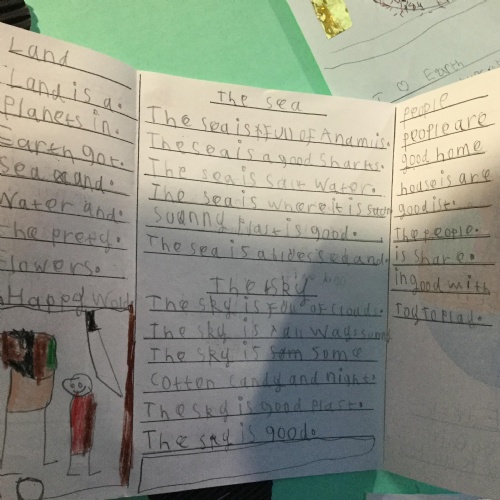 Land
Land is a.
Planets in.
Earth got.
Sea and.
Water and.
The prety.
Flowers.
Happy World
The sea
The sea is Full of Anamis.
The ceais a good Sharks.
The sea is Salt Water.
The sea is where It is
suanny Plast is good.
The sea is a
The Sky
The sky is Full of clouds.
The sky is Ways
The sky is some
cotten candy and night.
The sky is good plast.
The sky is good.
people
people are
good home
house is are
good ist.
The people.
is share.
in good with
Toy to play.
I Earth